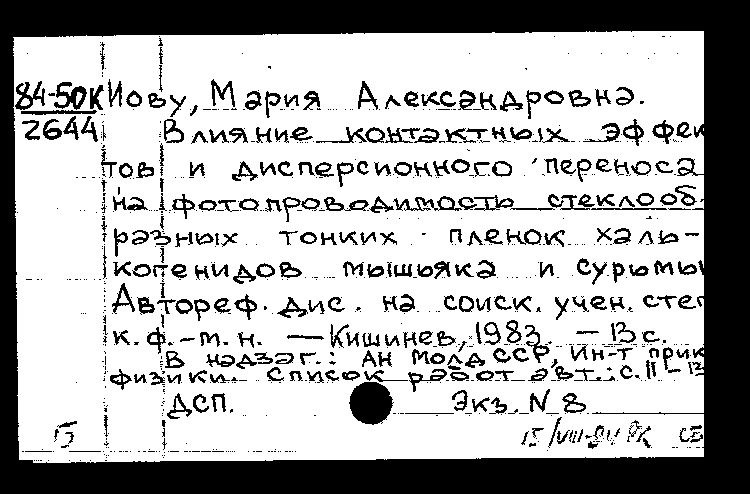 84-50К Иову, Мария Александровна.
2644 Влияние контактных эффек
тов и дисперсионного переноса
на фотопроводимость стеклооб-
разных тонких пленок халь-
когенидов мышьяка и сурьмы
Автореф. дис. на соиск. учен. степ
к. ф.-м. н. — Кишинев, 1983. — 13 с.
В надзаг.: АН МолдССР, Ин-т прик
физики. Список работ авт.: с. 11-13
ДСП. Экз. N 8
15 15/VIII-84 РК СБ